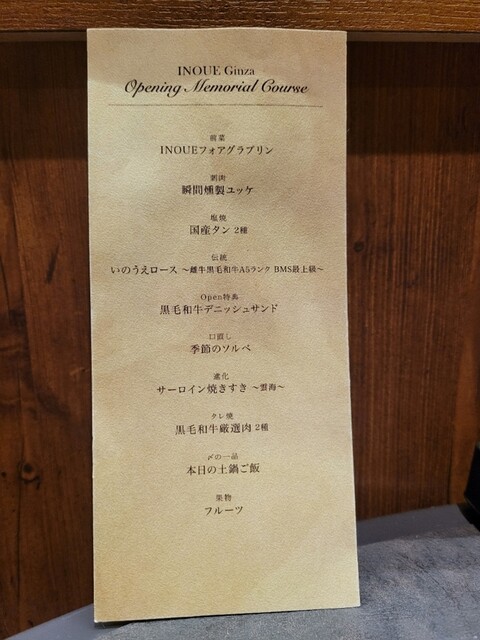 INOUE Ginza
Opening Memorial Course
前菜
INOUEフォアグラプリン
刺肉
瞬間燻製ユッケ
塩焼
国産タン 2種
伝統
いのうえロース ～雌牛黒毛和牛A5ランク BMS最上級～
Open特典
黒毛和牛デニッシュサンド
口直し
季節のソルベ
進化
サーロイン焼きすき ～雲海～
タレ焼
黒毛和牛厳選肉 2種
〆の一品
本日の土鍋ご飯
果物
フルーツ